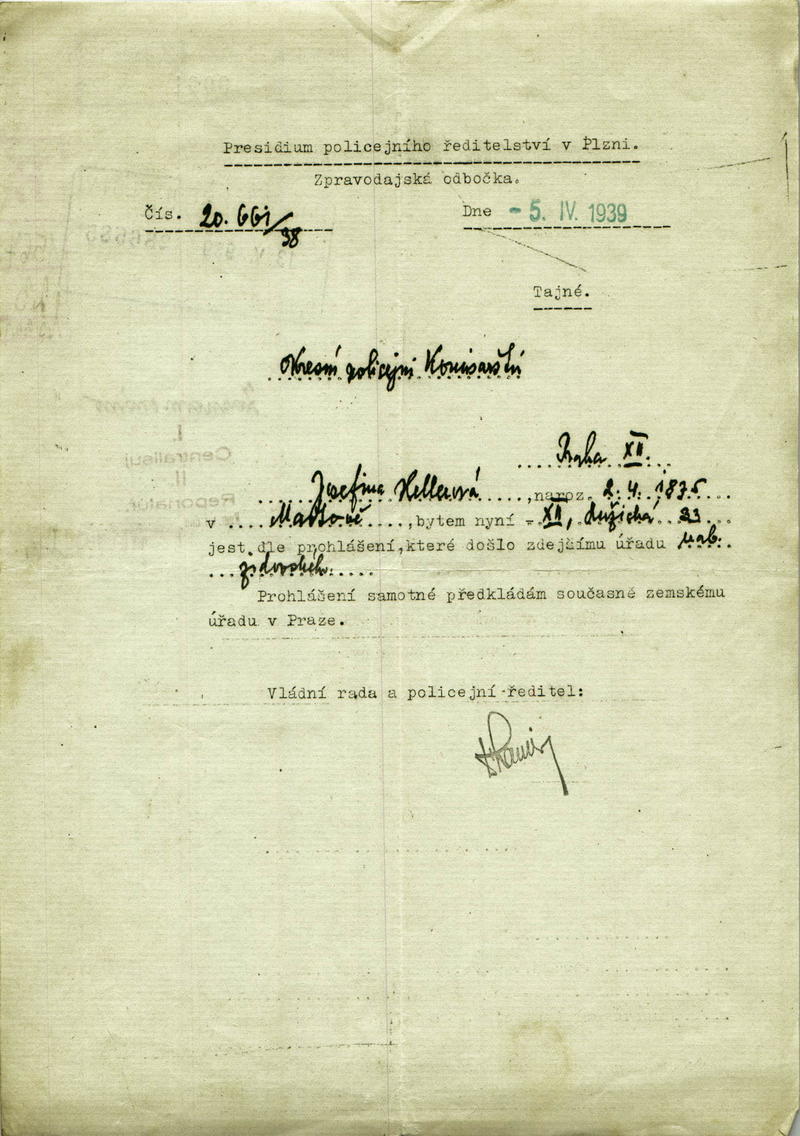 Presidium policejního ředitelství v Plzni.
Zpravodajská odbočka.
Čís. 20.661/38 Dne - 5. IV. 1939
Tajné.
Okresní policejní Komisařství
Praha XII.
Josefina Hellerová, naroz. 2.4.1875
v, bytem nyní XII, Lužická 23
jest dle prohlášení, které došlo zdejšímu úřadu náb.
židovského.
Prohlášení samotné předkládám současně zemskému
úřadu v Praze.
Vládní rada a policejní ředitel: